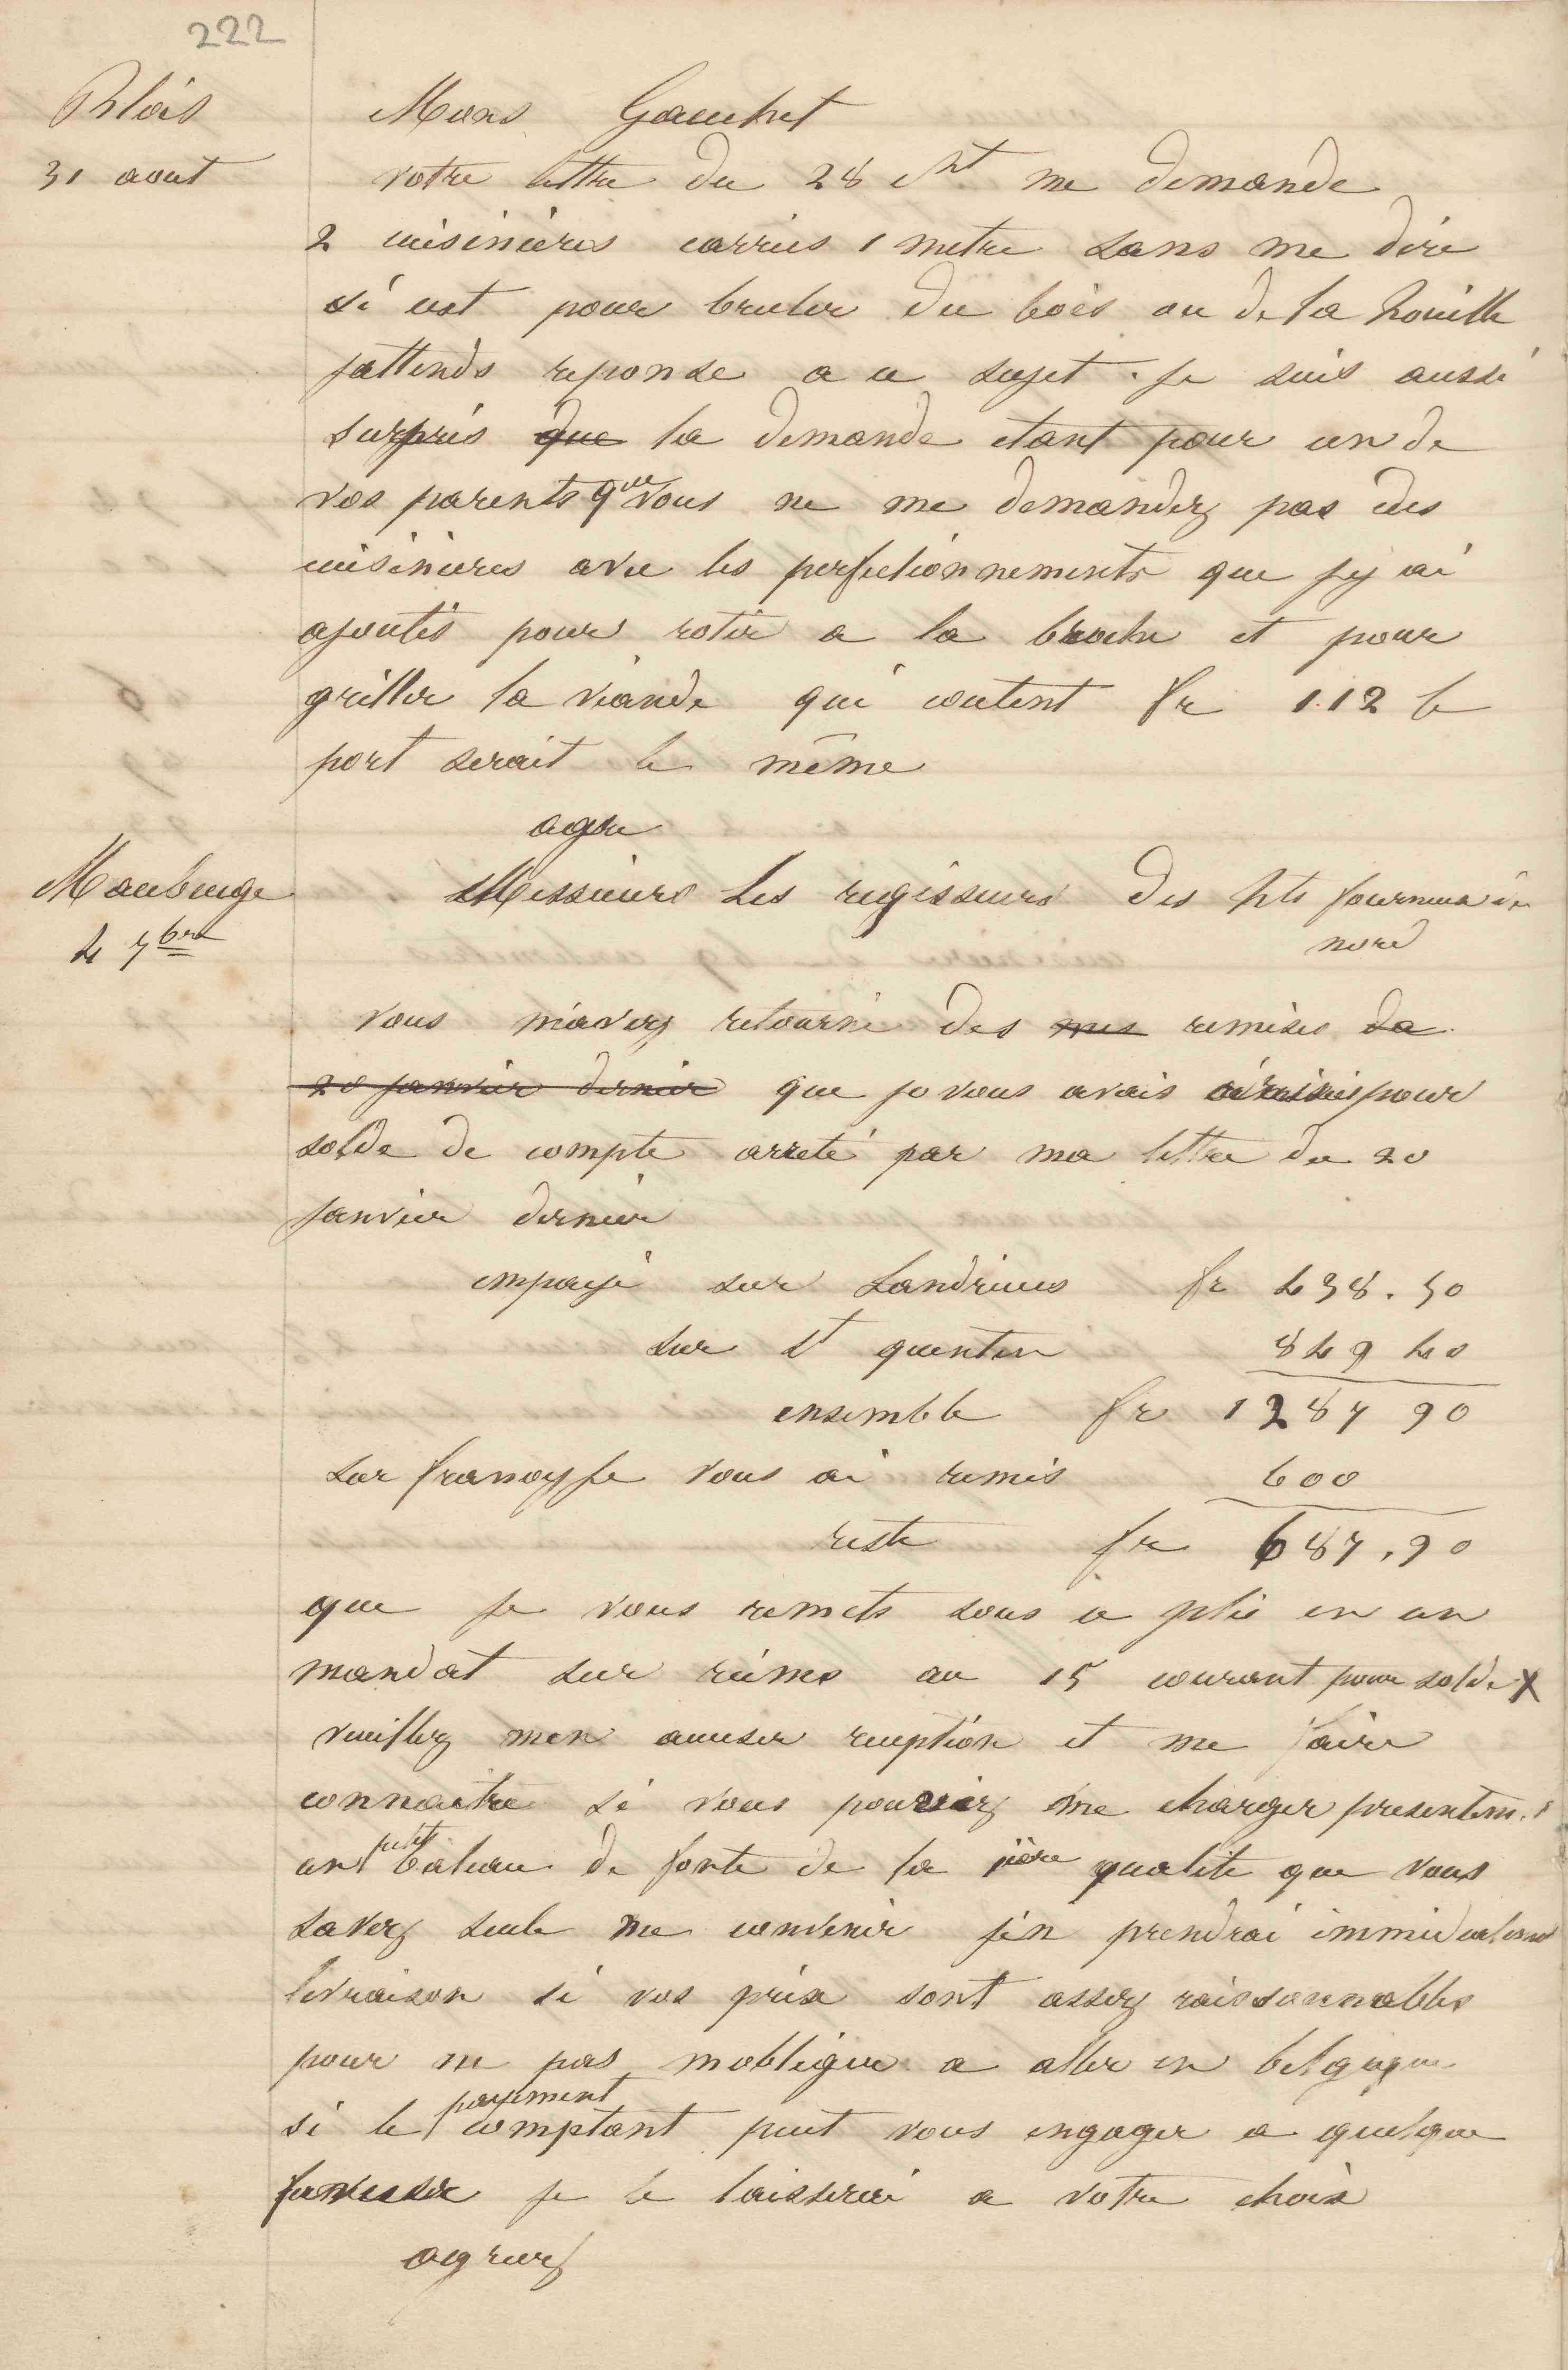 222
Blois
31 aout
Mons Gauchet
votre lettre du 28 ct me demande
2 cuisinieres carries 1 metre sans me dire
si cest pour bruler du bois ou de la houille
jattends reponse a ce sujet. je suis aussi
surpris que la demande etant pour un de
vos parents que vous ne me demandez pas des
cuisinieres avec les perfectionnements que jy ai
ajoutés pour rotir a la broche et pour
griller la viande qui coutent fr 112 le
port serait le même
agre
Maubeuge
4 7bre
Messieurs Les regisseurs des hts fourneux du
nord
vous m'avez retourné des mes remises da
20 janvier dernier que je vous avais pour
solde de compte arreté par ma lettre du 20
janvier dernier
impayé sur Landricies fr 438.50
sur st quentin 849 40
ensemble fr 1287 90
sur franoy je vous ai remis 600
reste fr 687.90
que je vous remets sous ce plie en un
mandat sur reims au 15 courant pour solde X
veuillez men accuser reception et me faire
connaitre si vous pourriez me charger presentem.t
un petit bateau de fonte de la 1ere qualite que vous
savez seule me convenir j'en prendrai immediatement
livraison si vos prix sont assez raissonnables
pour ne pas mobliger a aller en belgique
si le payement comptant peut vous engager a quelque
faveur je le laisserai a votre choix
agreez